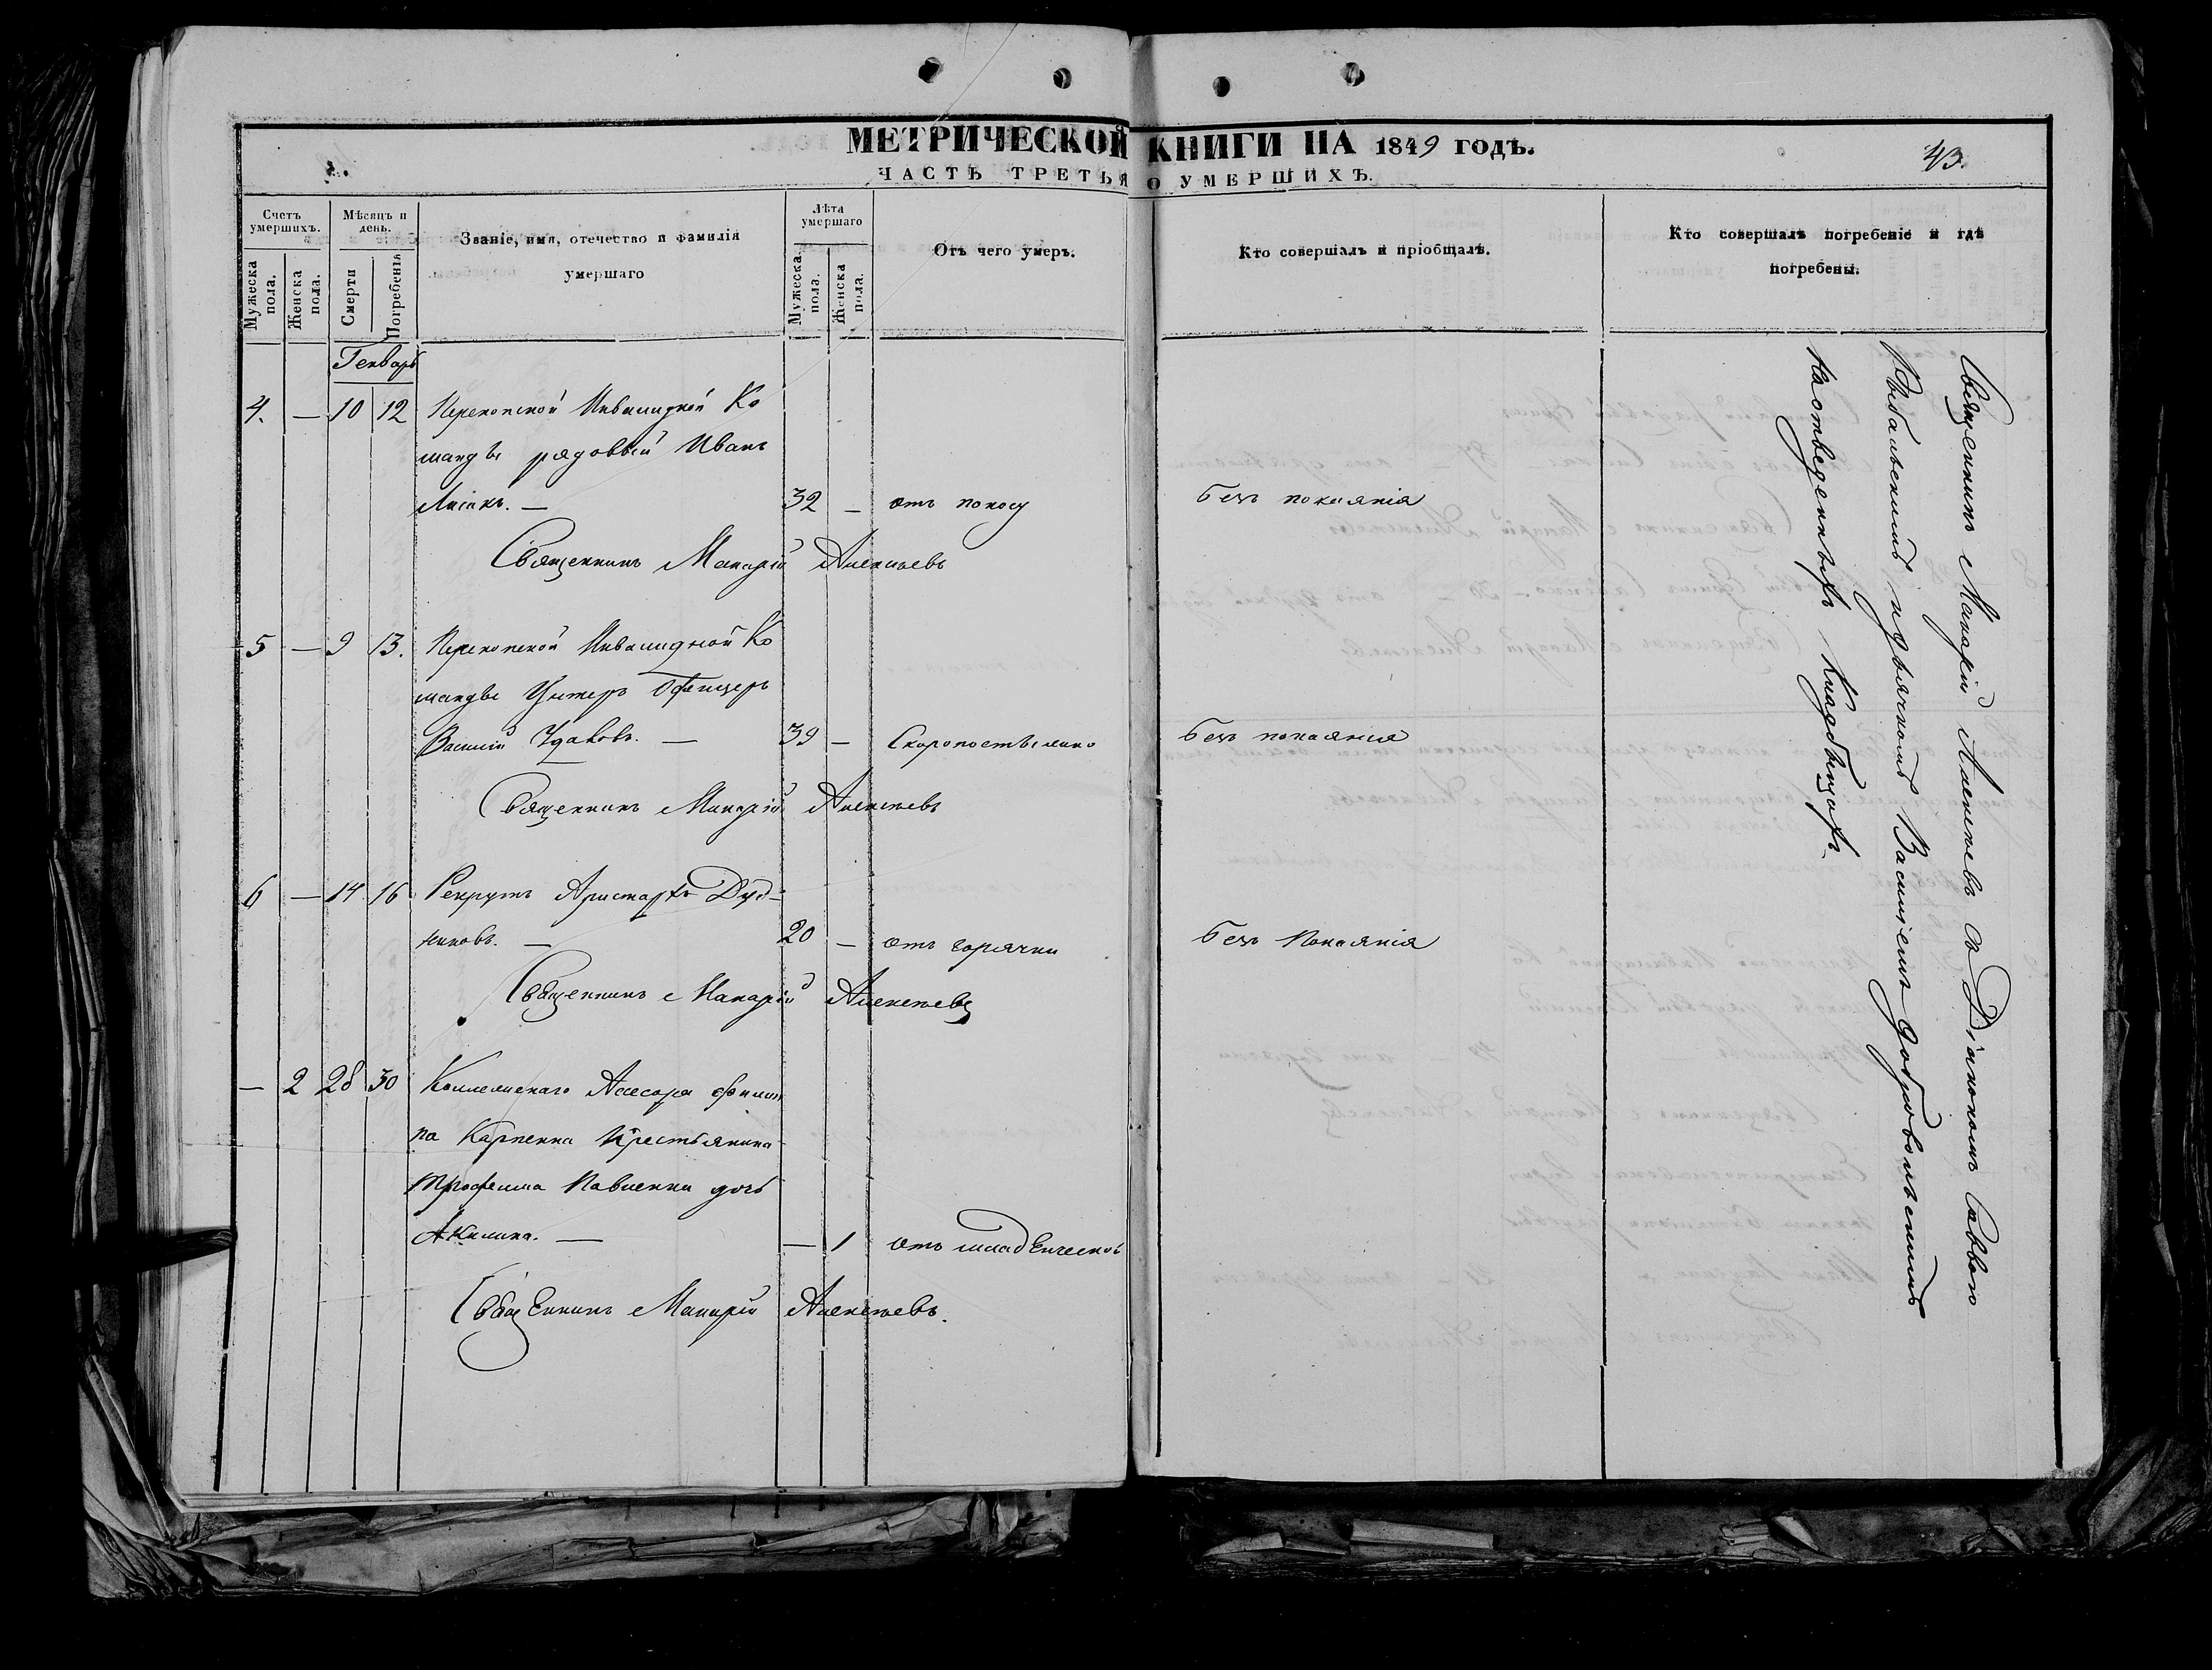 МЕТРИЧЕСКОЙ КНИГИ НА 1849 ГОДЪ.
43.
ЧАСТЬ ТРЕТЬЯ О УМЕРШИХЪ.
Счетъ умершихъ.
Мужеска пола.
Женска пола.
Мѣсяцъ и день.
Смерти
Погребенія
Званіе, имя, отечество и фамилія
умершаго
Лѣта умершаго
Мужеска пола.
Женска пола.
Отъ чего умеръ.
Кто совершалъ и пріобщалъ.
Кто совершалъ погребеніе и гдѣ
погребены.
Генварь
4. — 10 12 Перекопской Инвалидной Ко
манды рядовый Иванъ
32 — отъ поносу Безъ покаянія
Священникъ Макарій Алексѣевъ
5 — 9 13. Перекопской Инвалидной Ко
манды Унтеръ Офицеръ
Василій 39 — Скоропостыжно Безъ покаянія
Священникъ Макарій Алексѣевъ
6 — 14 16 Рекрутъ Аристархъ Дуд-
никовъ. — 20 — отъ горячки Безъ Покаянія
Священникъ Макарій Алексѣевъ
— 2 28 30 Коллежскаго Асесора Филип
па Карпенка Крестьянина
Трофима Павленка дочь
Акилина. — — 1 отъ младенческой
Священникъ Макарій Алексѣевъ.
Священникъ Макарій Алексѣевъ съ Діякономъ Саввою
Рыбальскимъ и дьячкомъ Василіемъ Добровольскимъ
На отведенныхъ Кладбищахъ